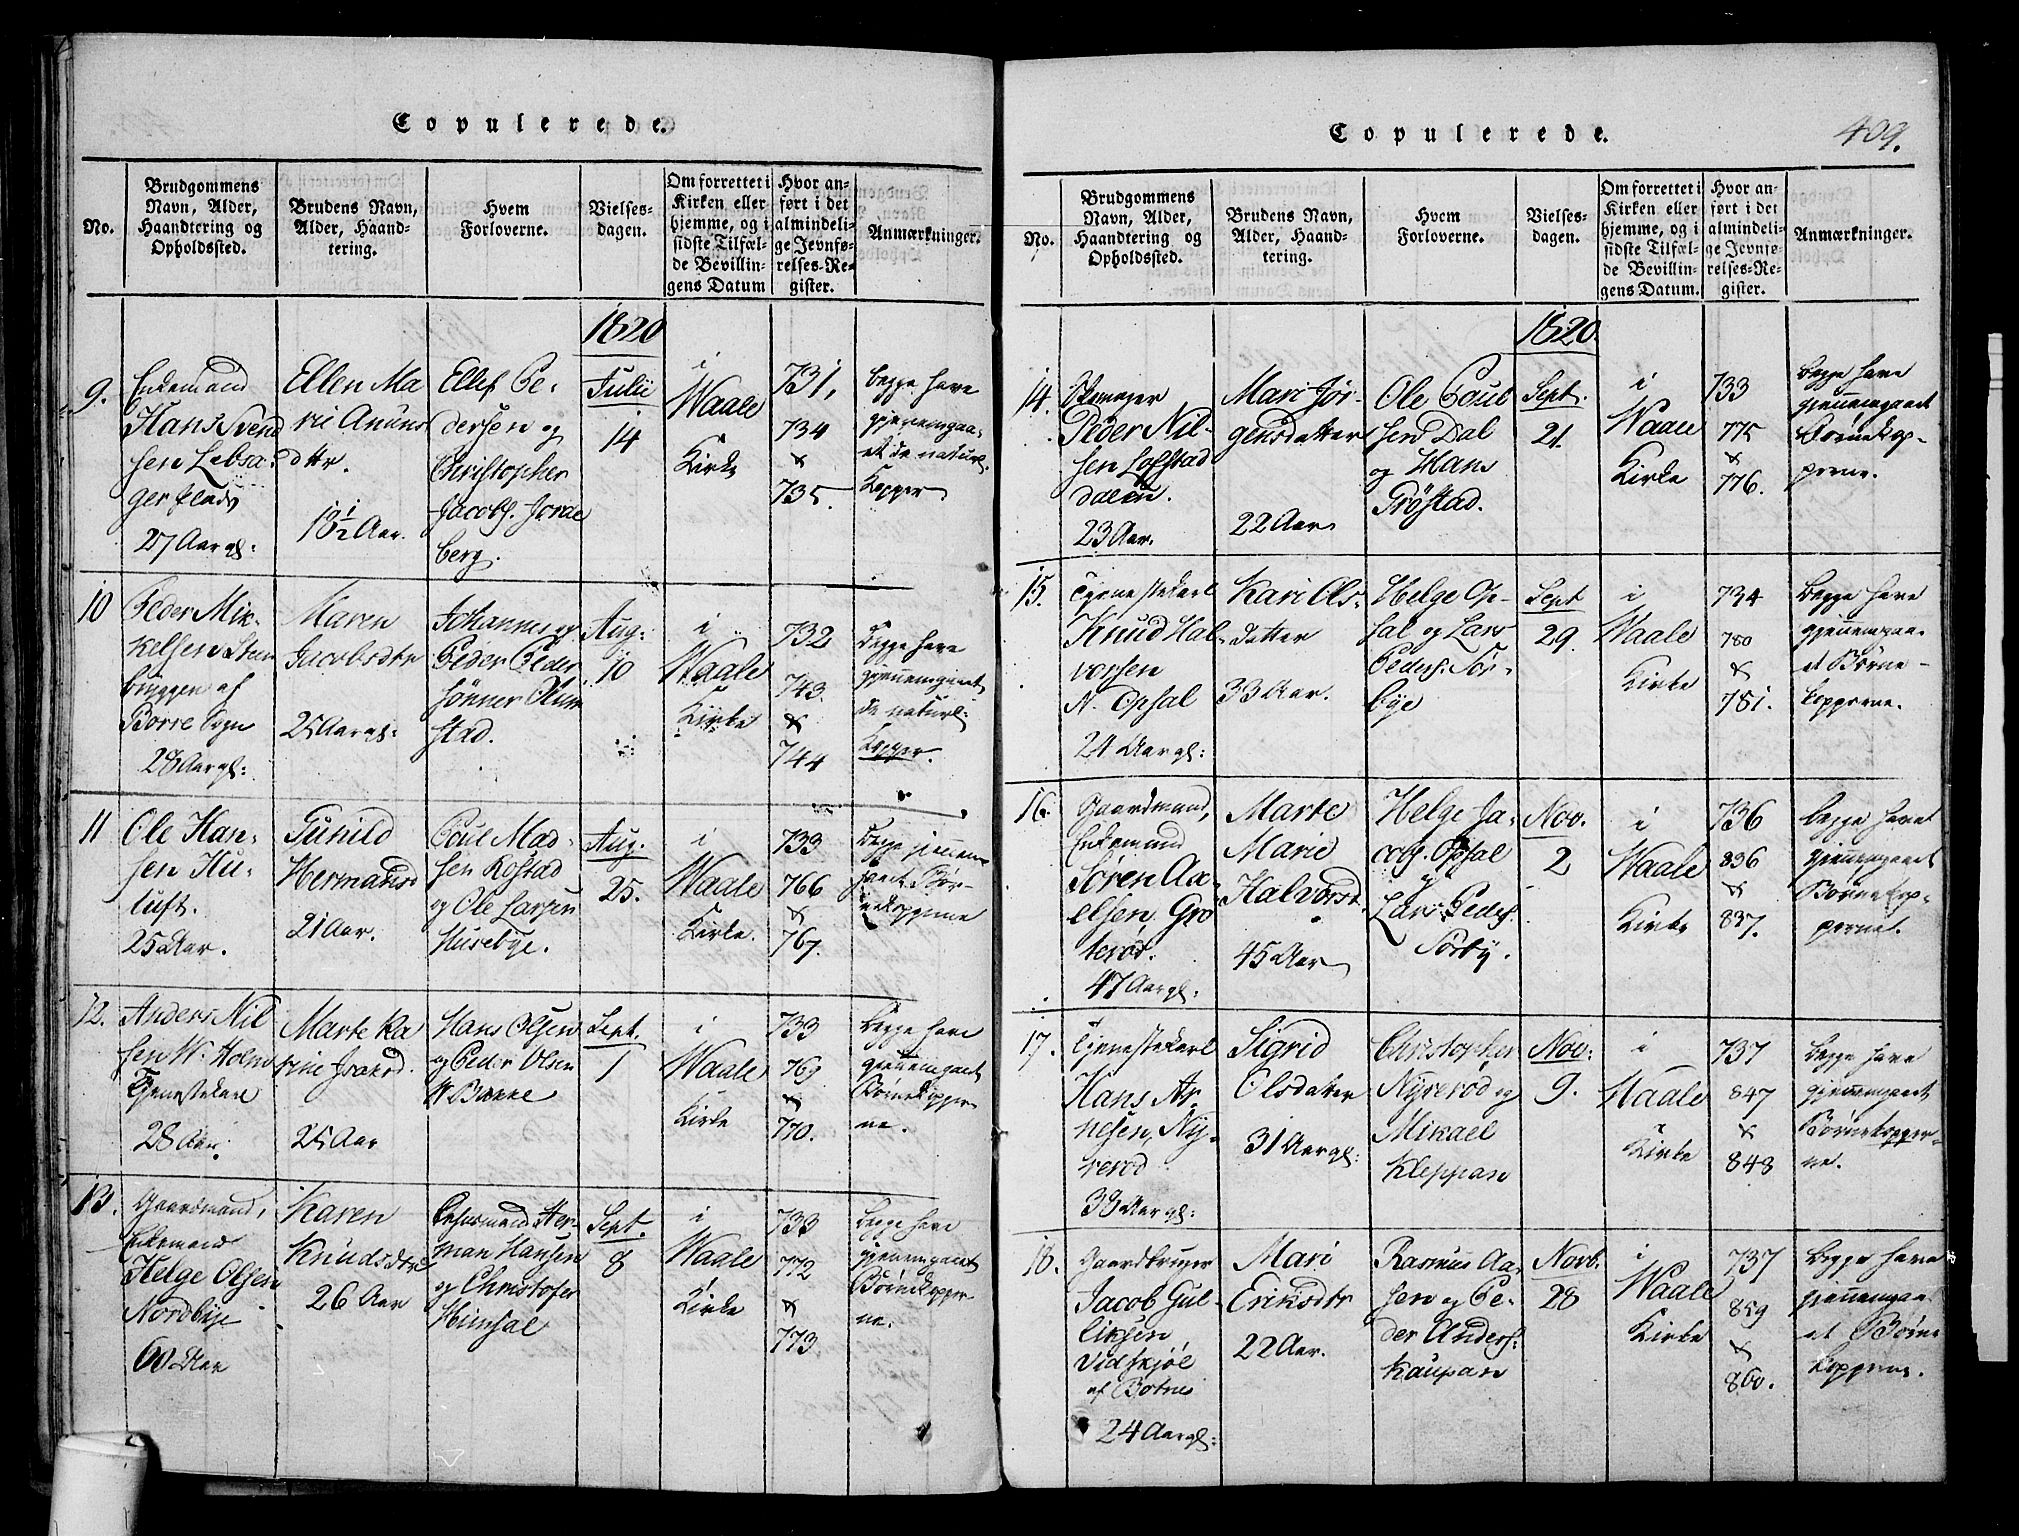 Copulerede.
No.
Brudgommens
Navn, Alder,
Haandtering og
Opholdssted.
Brudens Navn,
Alder, Haand-
tering.
Hvem
Forloverne.
Vielses-
dagen.
Om forrettet i
Kirken eller
hjemme, og i
sidste Tilfæl-
de Bevillin-
gens Datum
Hvor an-
ført i det
almindeli-
ge Jevnfø-
relses-Re-
gister.
Anmærkninger.
1820
9.
Enkemand
Hans Svend
sen Lebsa-
ger Plads
27 Aar gl:
Ellen Ma
rie Anuns
dttr.
18½ Aar.
Ellef Pe-
dersen og
Christopher
Jacobs.
berg.
Julii
14
i
Waale
Kirke
731,
734
&
735.
begge have
gjennemgaa-
et de naturl:
Kopper
10
Peder Mik-
kelsen
bryggen af
Borre Sogn
28 Aar gl:
Maren
Jacobsdtr
25 Aar gl:
Johannes og
Peder Peder
sønner
stad.
Aug:
10
i
Waale
Kirke
732
743.
&
744
Begge have
gjennemgaaet
de naturl:
Kopper.
11
Ole Han-
sen Hu-
tuft.
25 Aar.
Gunild
Hermansd
21 Aar.
Poul Mad-
sen Rostad
og Ole Larsen
Husebye.
Aug.
25.
i
Waale
Kirke.
733
766
&
767.
Begge gjennem
gaaet Bør-
nekopperne
12.
Anders Nil
sen W. Holm
Tjenestekarl
28 Aar.
Marte Ka
rine Isaksd.
25 Aar
Hans Olsen
og Peder Olsen
W Bakke
Sept.
1
i
Waale
Kirke
733
769
&
770.
Begge have
gjennemgaaet
Børnekopper
ne.
13.
Gaardmand,
Enkemand
Helge Olsen
Nordbye
60 Aar
Karen
Knudsdtr
26 Aar
Her-
man Hansen
og Christofer
Himsal
Sept.
8
i
Waale
Kirke
733
772
&
773
Begge have
gjennemgaaet
Børnekopper
ne.
Copulerede.
409.
No.
Brudgommens
Navn, Alder,
Haandtering og
Opholdssted.
Brudens Navn,
Alder, Haand-
tering.
Hvem
Forloverne.
Vielses-
dagen.
Om forrettet i
Kirken eller
hjemme, og i
sidste Tilfæl-
de Bevillin-
gens Datum.
Hvor an-
ført i det
almindeli-
ge Jevnfø-
relses-Re-
gister.
Anmærkninger.
1820.
14.
Peder Nil-
sen Lofstad
dalen.
23 Aar.
Mari Jør-
gensdatter
22 Aar
Ole Poul
sen Dal
og Hans
Frøstad.
Sept.
21.
i
Waale
Kirke
733
775
&
776.
begge have
gjennemgaaet
Børnekop-
perne.
15.
Tjenestekarl
Knud Hal-
vorsen
N. Opsal
24 Aar gl:
Kari Ols-
datter
33 Aar.
Helge Op-
sal og Lars
Peders. Sør-
bye
Sept
29.
i
Waale
Kirke
734
780
&
781.
Begge have
gjennemgaa-
et Børne-
kopperne.
16.
Gaardmand,
Enkemand
Søren Aa-
elsen Gro
terød.
47 Aar gl:
Marte
Marie
Halvorsd.
45 Aar
Helge Ja-
cobs. Opsal
&
Lars Peders.
Sørby.
Nov.
2
i
Waale
Kirke
736
836
&
837.
begge havet
gjennemgaaet
Børnekop-
pernet.
17.
Tjenestekarl
Hans Ar
nesen, Ny-
rerød
38 Aar gl:
Sigrid
Olsdatter
31 Aar gl:
Christopher
Nyrerød og
Mikael
Kleppan
Nov:
9.
i
Waale
Kirke
737
847
&
848
begge have
gjennemgaaet
Børnekopper-
ne.
18.
Gaardbruger
Jacob Gul-
liksen
Vidskjøl
af Botne
24 Aar gl:
Mari
Eriksdtr
22 Aar.
Rasmus Aa-
sen og Pe-
der Anders.
Kaupan
Novb.
28
i
Waale
Kirke
737
859
&
860.
begge have
gjennemgaa-
et Børne
kopperne.